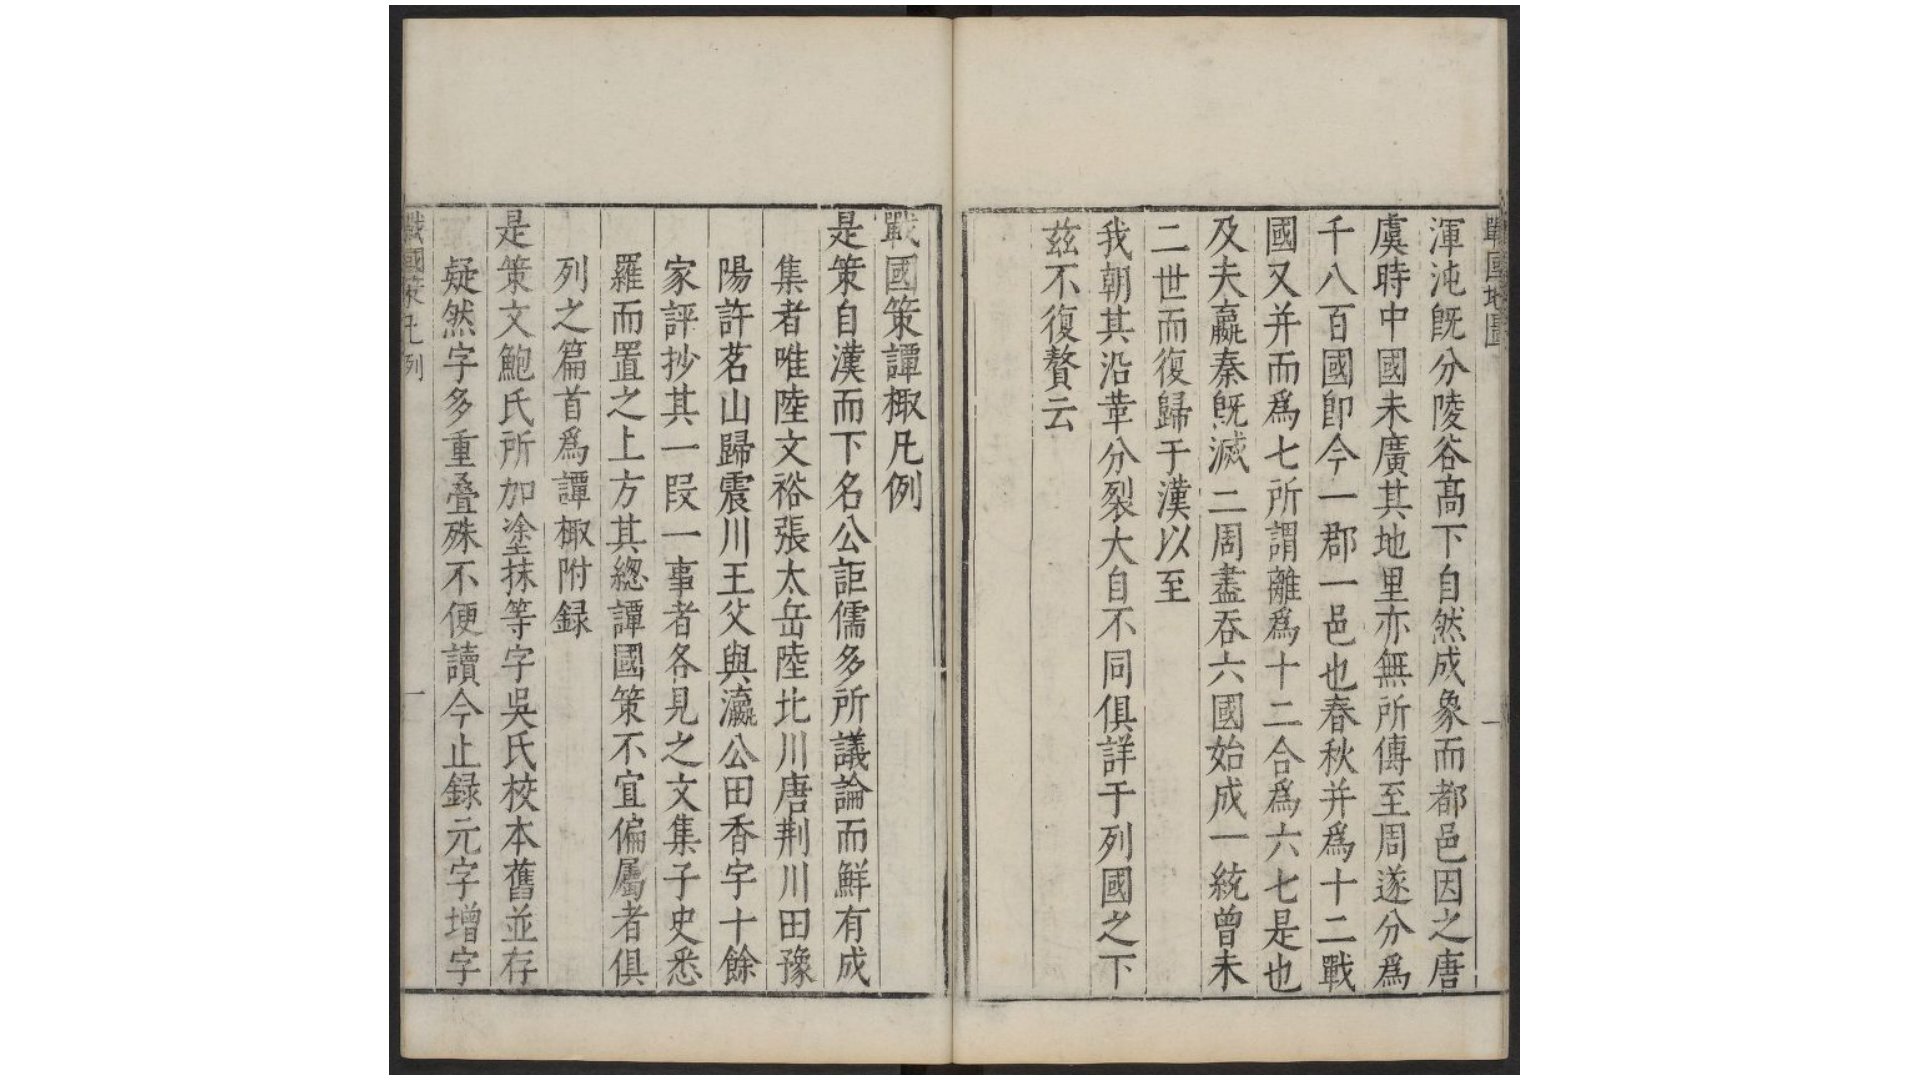 戰國地圖 一
渾沌旣分陵谷高下自然成象而都邑因之唐
虞時中國未廣其地里亦無所傳至周遂分爲
千八百國卽今一郡一邑也春秋并爲十二戰
國又并而爲七所謂離爲十二合爲六七是也
及夫嬴秦旣滅二周盡吞六國始成一統曾未
二世而復歸于漢以至
我朝其沿革分裂大自不同俱詳于列國之下
茲不復贅云
戰國策譚棷凡例
是策自漢而下名公詎儒多所議論而鮮有成
集者唯陸文裕張太岳陸北川唐荆川田豫
陽許茗山歸震川王父與瀛公田香宇十餘
家評抄其一段一事者各見之文集子史悉
羅而置之上方其總譚國策不宜偏屬者俱
列之篇首爲譚棷附録
是策文鮑氏所加塗抹等字吳氏校本舊並存
疑然字多重疊殊不便讀今止録元字增字
戰國策凡例 一